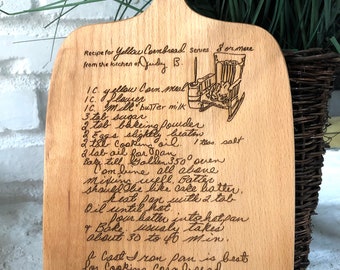 Recipe for Yellow Cornbread Serves 8 or more
from the kitchen of Judy B.
1 C. yellow Corn meal
1 C. Flower
1 C. Milk butter milk
3 tab sugar
2 tab baking powder
2 Eggs slightly beaten
2 tab cooking oil 1 tea salt
2 tab oil for pan
bake till Golden 350° oven
Combine all above
mixing well. Batter
should be like cake batter,
heat pan with 2 tab
Oil until hot
pour batter into hot pan
& Bake usually takes
about 30 to 40 min.
A Cast Iron pan is best
for Cooking Corn bread